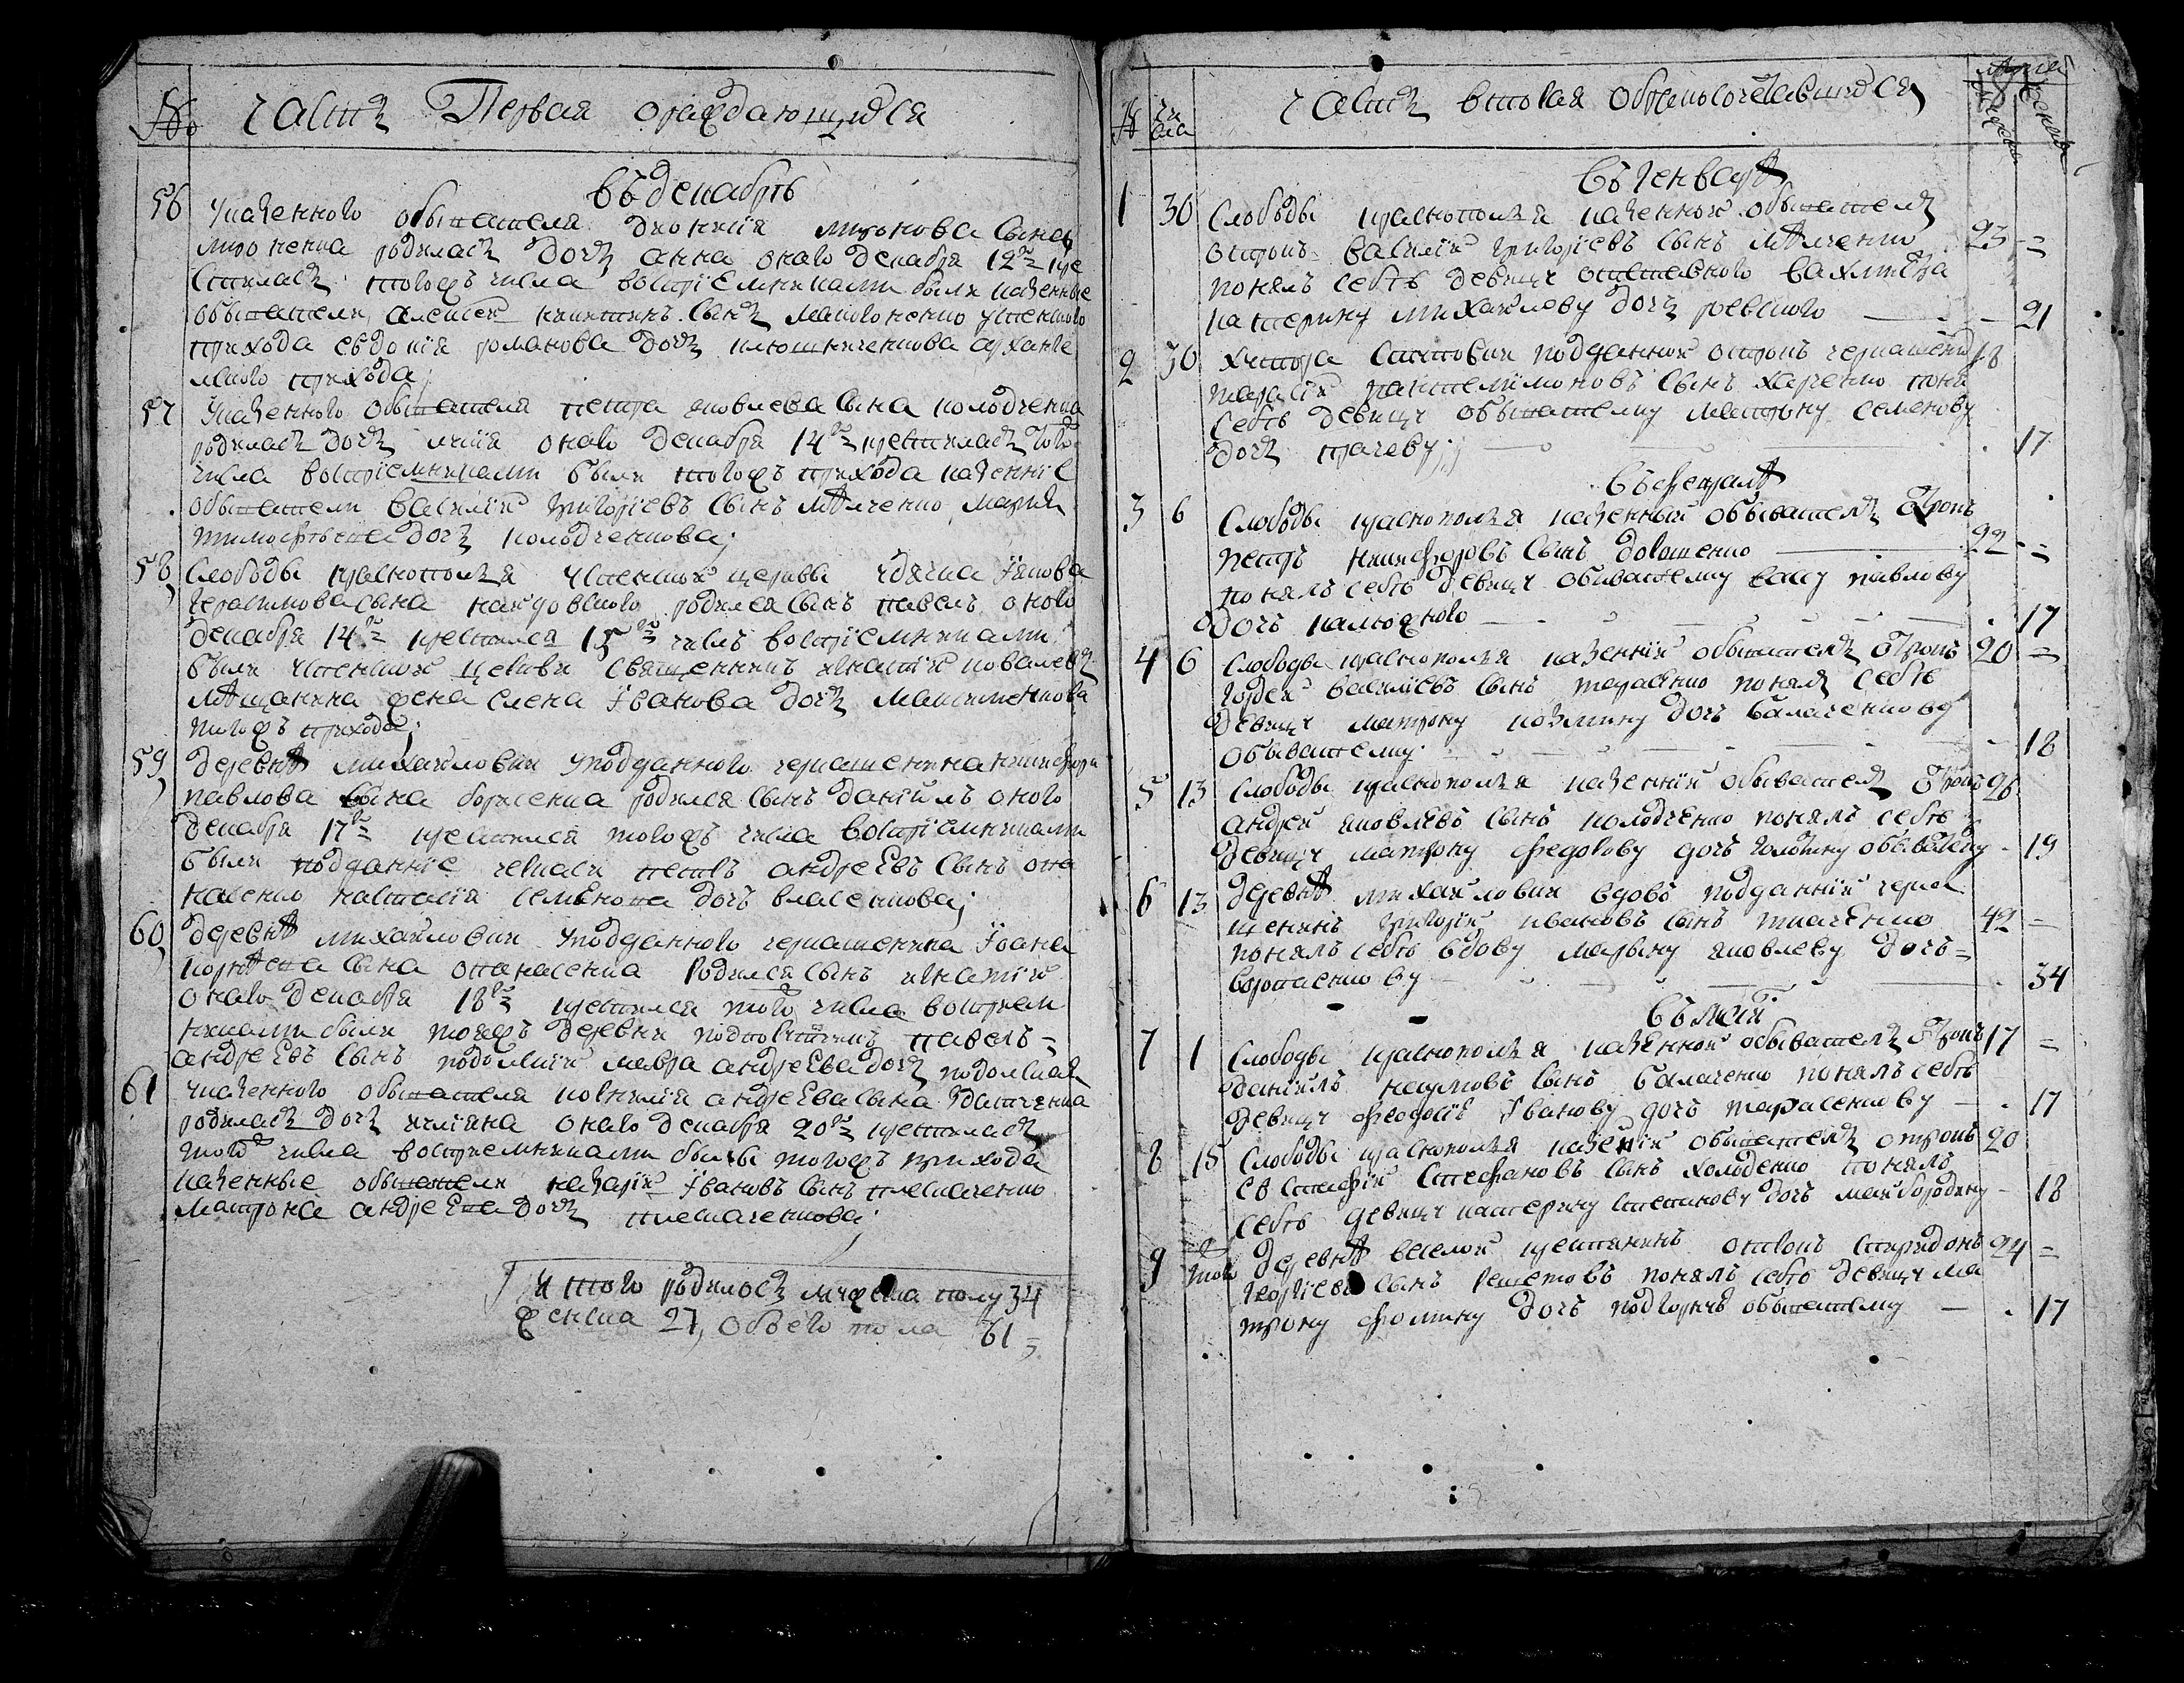 № Часть Первая о раждающихся
въ декабрѣ
56 У казенного обывателя Дионисія миронова сына
мироненка родилась дочь анна оного декабря 12го кре
стилась тогожъ числа воспріемниками были казенные
обыватели алексей никитинъ сынъ
прихода евдокія романова дочь арханге
лского прихода
57 У казенного обывателя петра яковлева сына колодченка
родилась дочь оного декабря 14го крестилась того
числа воспріемниками были тогожъ прихода казенніе
обыватели василій григоріевъ сынъ мѣлченко марія
тимофѣева дочь колодченкова
58 Слободы краснополья успенской церкви удячка якова
герасимова сына родился сынъ павелъ оного
декабря 14го крестился 15го числъ воспріемниками
были успенской церкви священникъ игнатій ковалевъ
мѣщанина жена елена Iванова дочь
тогожъ прихода
59 деревнѣ михайловки уподданного черкашенина никифора
павлова сына борисенка родился сынъ даніилъ оного
декабря 17го крестился тогожъ числа воспріемниками
были подданніе черкаси петръ андрЕевъ сынъ опа
насенко настасія семЕнова дочь власенкова
60 деревнѣ михайловки уподданного черкашенина Iвана
корнѣева сына опанасенка родился сынъ игнатій
оного декабря 18го крестился того числа воспріем
никами были тояжъ деревни павелъ
андрЕевъ сынъ подолский мавра андрЕева дочь подолская
61 Указенного обывателя корнилія андрЕева сына
родилась дочь уліяна оного декабря 20го крестилась
того числа воспріемниками были тогожъ прихода
казенные обыватели назарій Iвановъ сынъ плескаченко
матрона андрЕева дочь плескаченкова
И того родилось мужеска полу 34
женска 27, обоего пола 61
№ чи сла Часть вторая о бракосочетавшихся
въ генварѣ
1 30 Слободы краснополья казенной обыватель
отрокъ василій григоріевъ сынъ мѣлченко 23 =
понялъ себѣ девицу отставного вахмистра
катерину михайлеву дочь 21
2 30 Хутора подданной отрокъ черкашенин 18
тарасій пантелимоновъ сынъ харченко поня
себѣ девицу обывателку матрону семенову
дочь ткачеву 17
въ февралѣ
3 6 Слободы краснополья казенный обыватель отрокъ
петръ никифоровъ сынъ довженко 22 =
понялъ себѣ девицу обывателку васу павлову
дочь калюжного 17
4 6 Слободы краснополья казенній обыватель отрокъ 20 =
гордей василіевъ сынъ тарасенко понялъ себѣ
девицу матрону козмину дочь балаченкову
обывателку 18
5 13 Слободы краснополья казенній обыватель отрокъ 26
андрей яковлевъ сынъ колодченко понялъ себѣ
девицу матрону федорову дочь обывателку 19
6 13 деревнѣ михайловки вдовъ подданній черка
шенинъ григорій ивановъ сынъ ткачЕнко 42 =
понялъ себѣ вдову марѣну яковлеву дочь =
34
въ маіи
7 1 Слободы краснополья казенной обыватель отрокъ 17 =
даніилъ наумовъ сынъ балаченко понялъ себѣ
девицу феодосію Iванову дочь тарасенкову 17
8 15 Слободы краснополья казеній обыватель отрокъ 20
евстафій стефановъ сынъ холоденко понялъ
себѣ девицу катерину степанову дочь майбородину 18
9 того деревнѣ веселой крестянинъ отрокъ спиридонъ 24 =
георгіевъ сынъ решетовъ понялъ себѣ девицу ма
трону фомину дочь обывателку 17